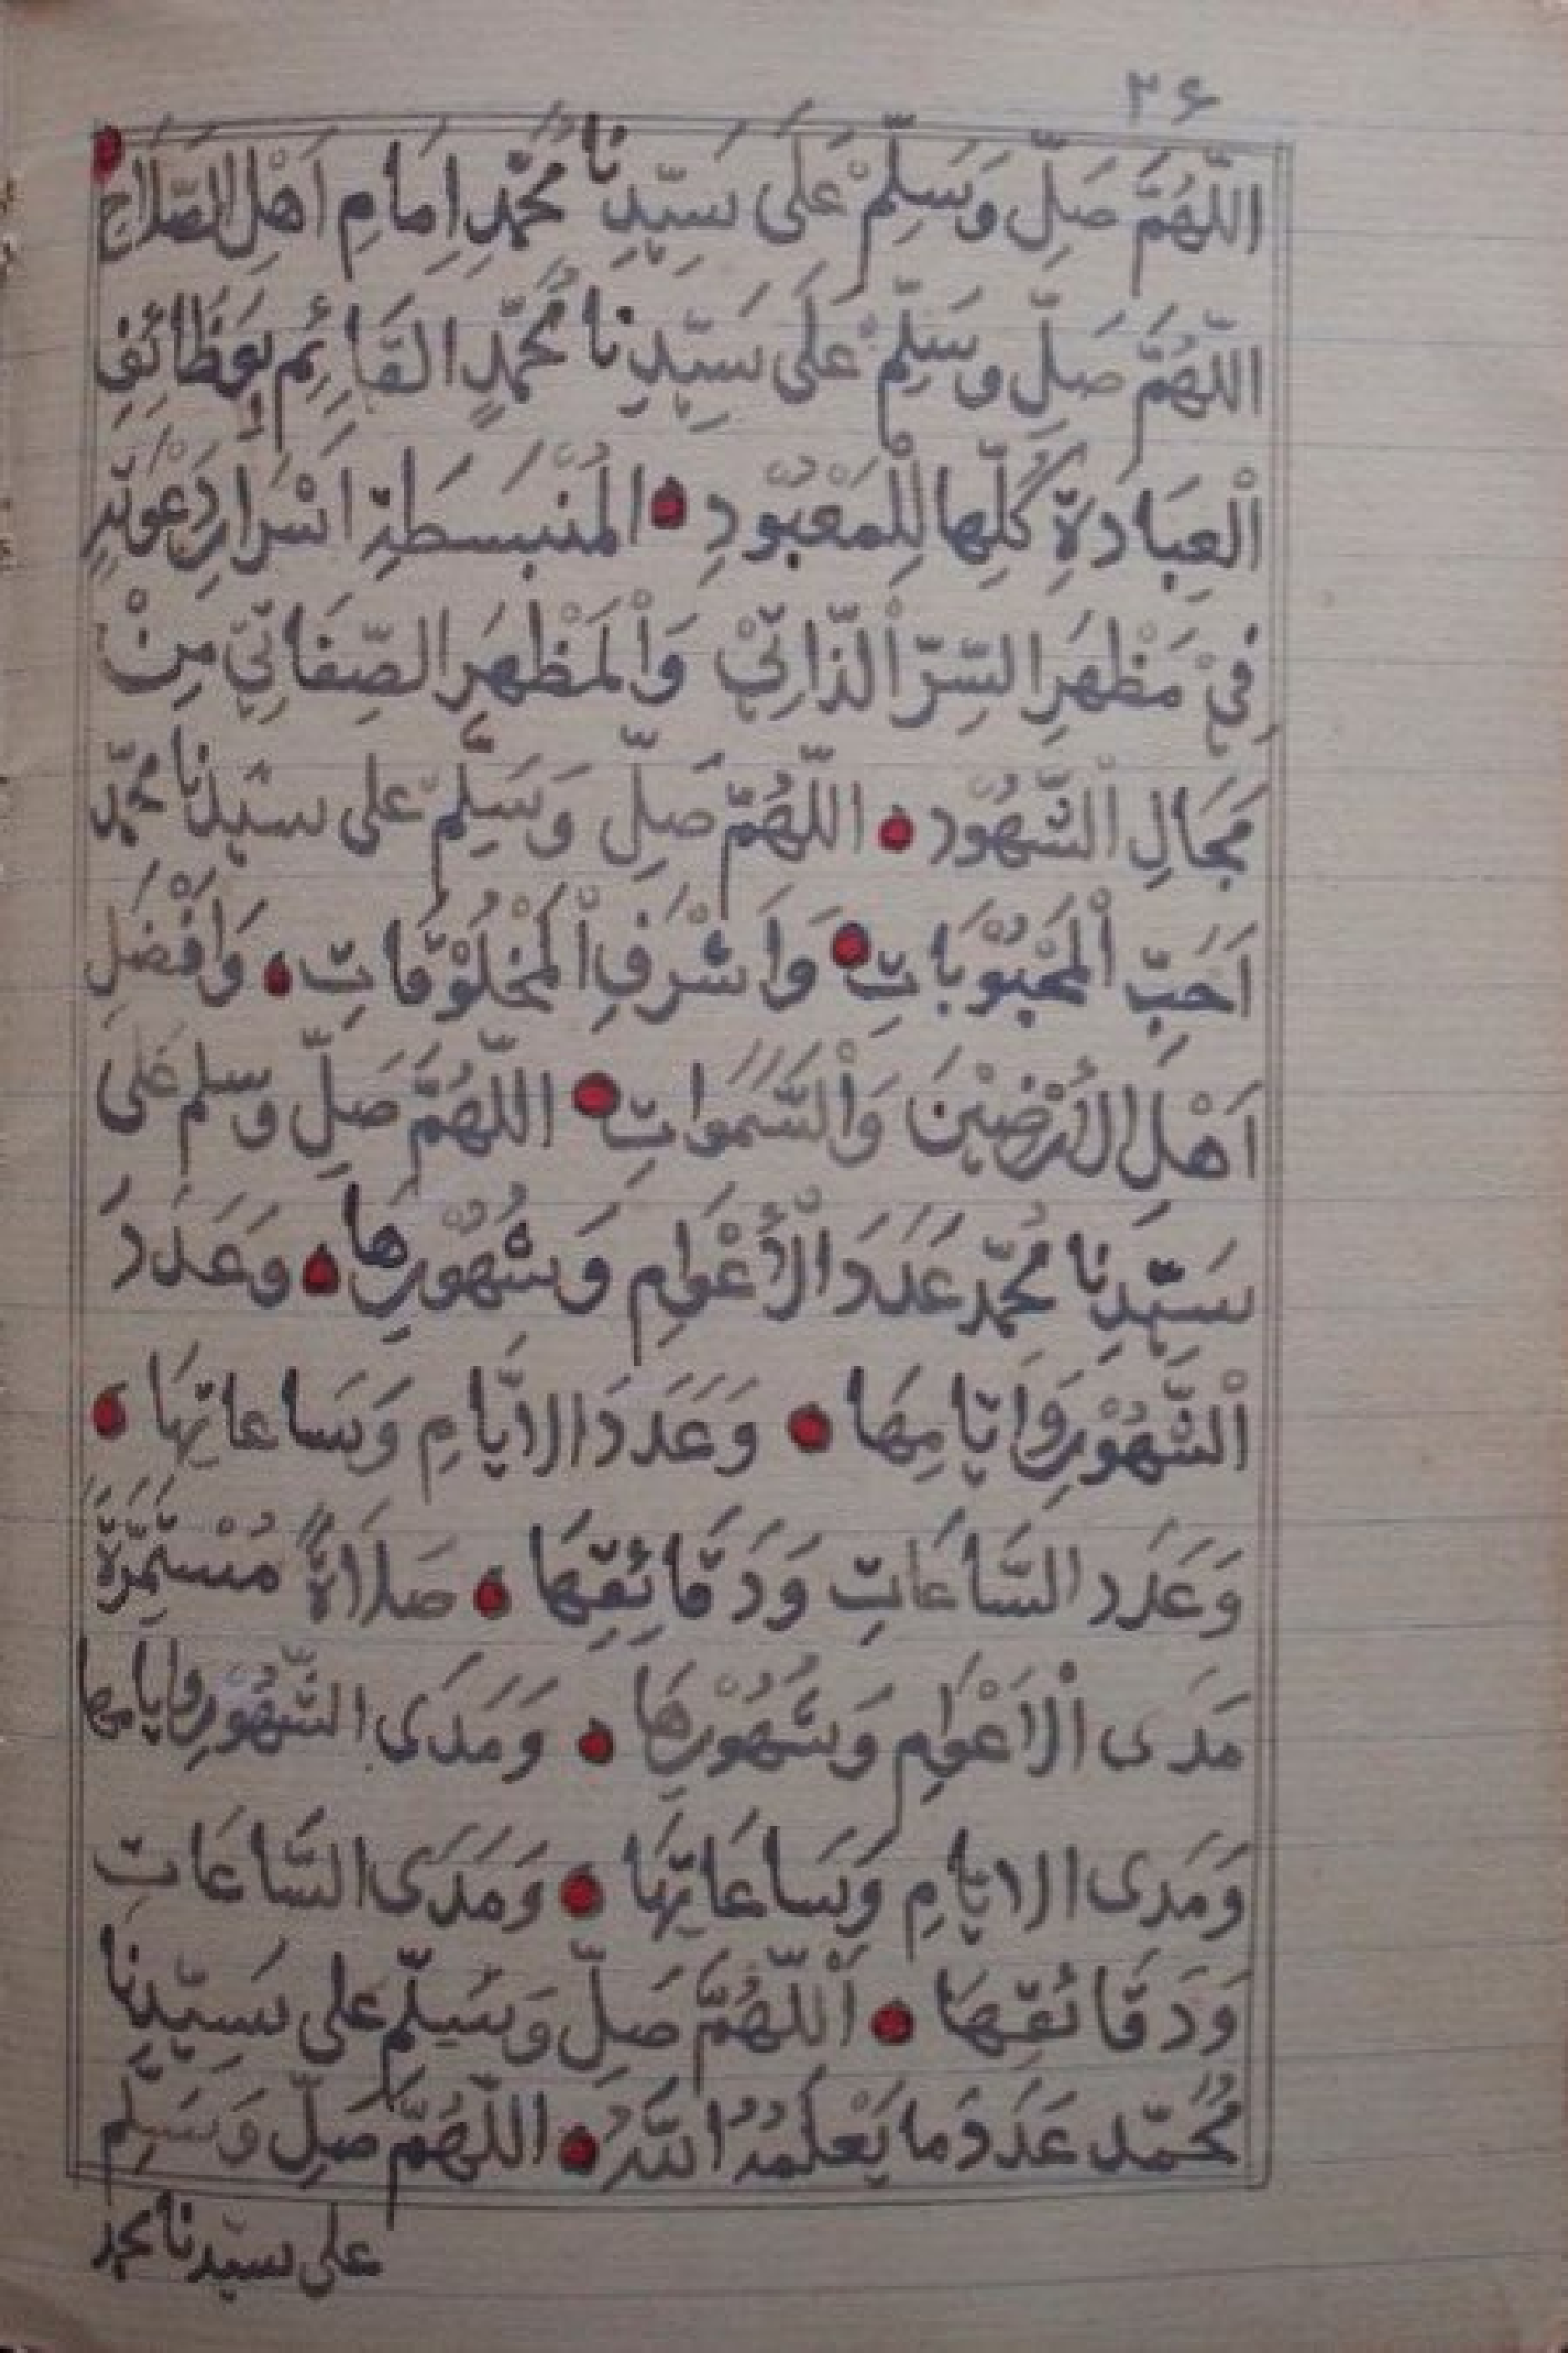 ۲۶
اللّٰهُمَّ صَلِّ وَسَلِّمْ عَلَى سَيِّدِنَا مُحَمَّدٍ اِمَامِ اَهْلِ الصَّلَاحِ
اللّٰهُمَّ صَلِّ وَسَلِّمْ عَلَى سَيِّدِنَا مُحَمَّدٍ القَائِمِ بِوَظَائِفِ
الْعِبَادَةِ كُلِّهَا لِلْمَعْبُوْدِ المُنْبَسَطَةِ اَسْرَارِ دَعْوَتِهِ
فِيْ مَظْهَرِ السِّرِّ الْذَّاتِيْ وَالْمَظْهَرِ الصِّفَاتِيّ مِنْ
مَجَالِ الْشُّهُوْد اللّٰهُمَّ صَلِّ وَسَلِّمْ عَلى سَيِّدِنَا مُحَمَّد
اَحَبِّ الْمَحْبُوْبَاتِ وَاَشْرَفِ الْمَخْلُوْقَاتِ وَاَفْضَلِ
اَهْلِ الأَرْضِيْنَ وَالْسَّمٰوَاتِ اللّٰهُمَّ صَلِّ وسلم عَلَى
سَيِّدِنَا مُحَمَّد عَدَدَ الْأَعْوَامِ وَشُهُوْرِهَا وَعَدَدَ
الْشُّهُوْرِ وَاَيَّامِهَا وَعَدَدَ الايَّامِ وَسَاعَاتِهَا
وَعَدَد السَّاعَاتِ وَدَقَائِقِهَا صَلَاةً مُسْتَمِرَّةً
مَدَى الْاَعْوَامِ وَشُهُوْرِهَا وَمَدَى الشُّهُوْرِ وَايامِها
وَمَدى الايَّامِ وَسَاعَاتِهَا وَمَدَى السَّاعَاتِ
وَدَقَائقِهَا اَللّٰهُمَّ صَلِّ وَسَلِّمْ عَلى سَيِّدِنَا
مُحَمَّد عَدَدَ مَا يَعْلَمُهُ اللّٰهُ اللّٰهُمَّ صَلِّ وَسَلِّم
على سيدنا محمد